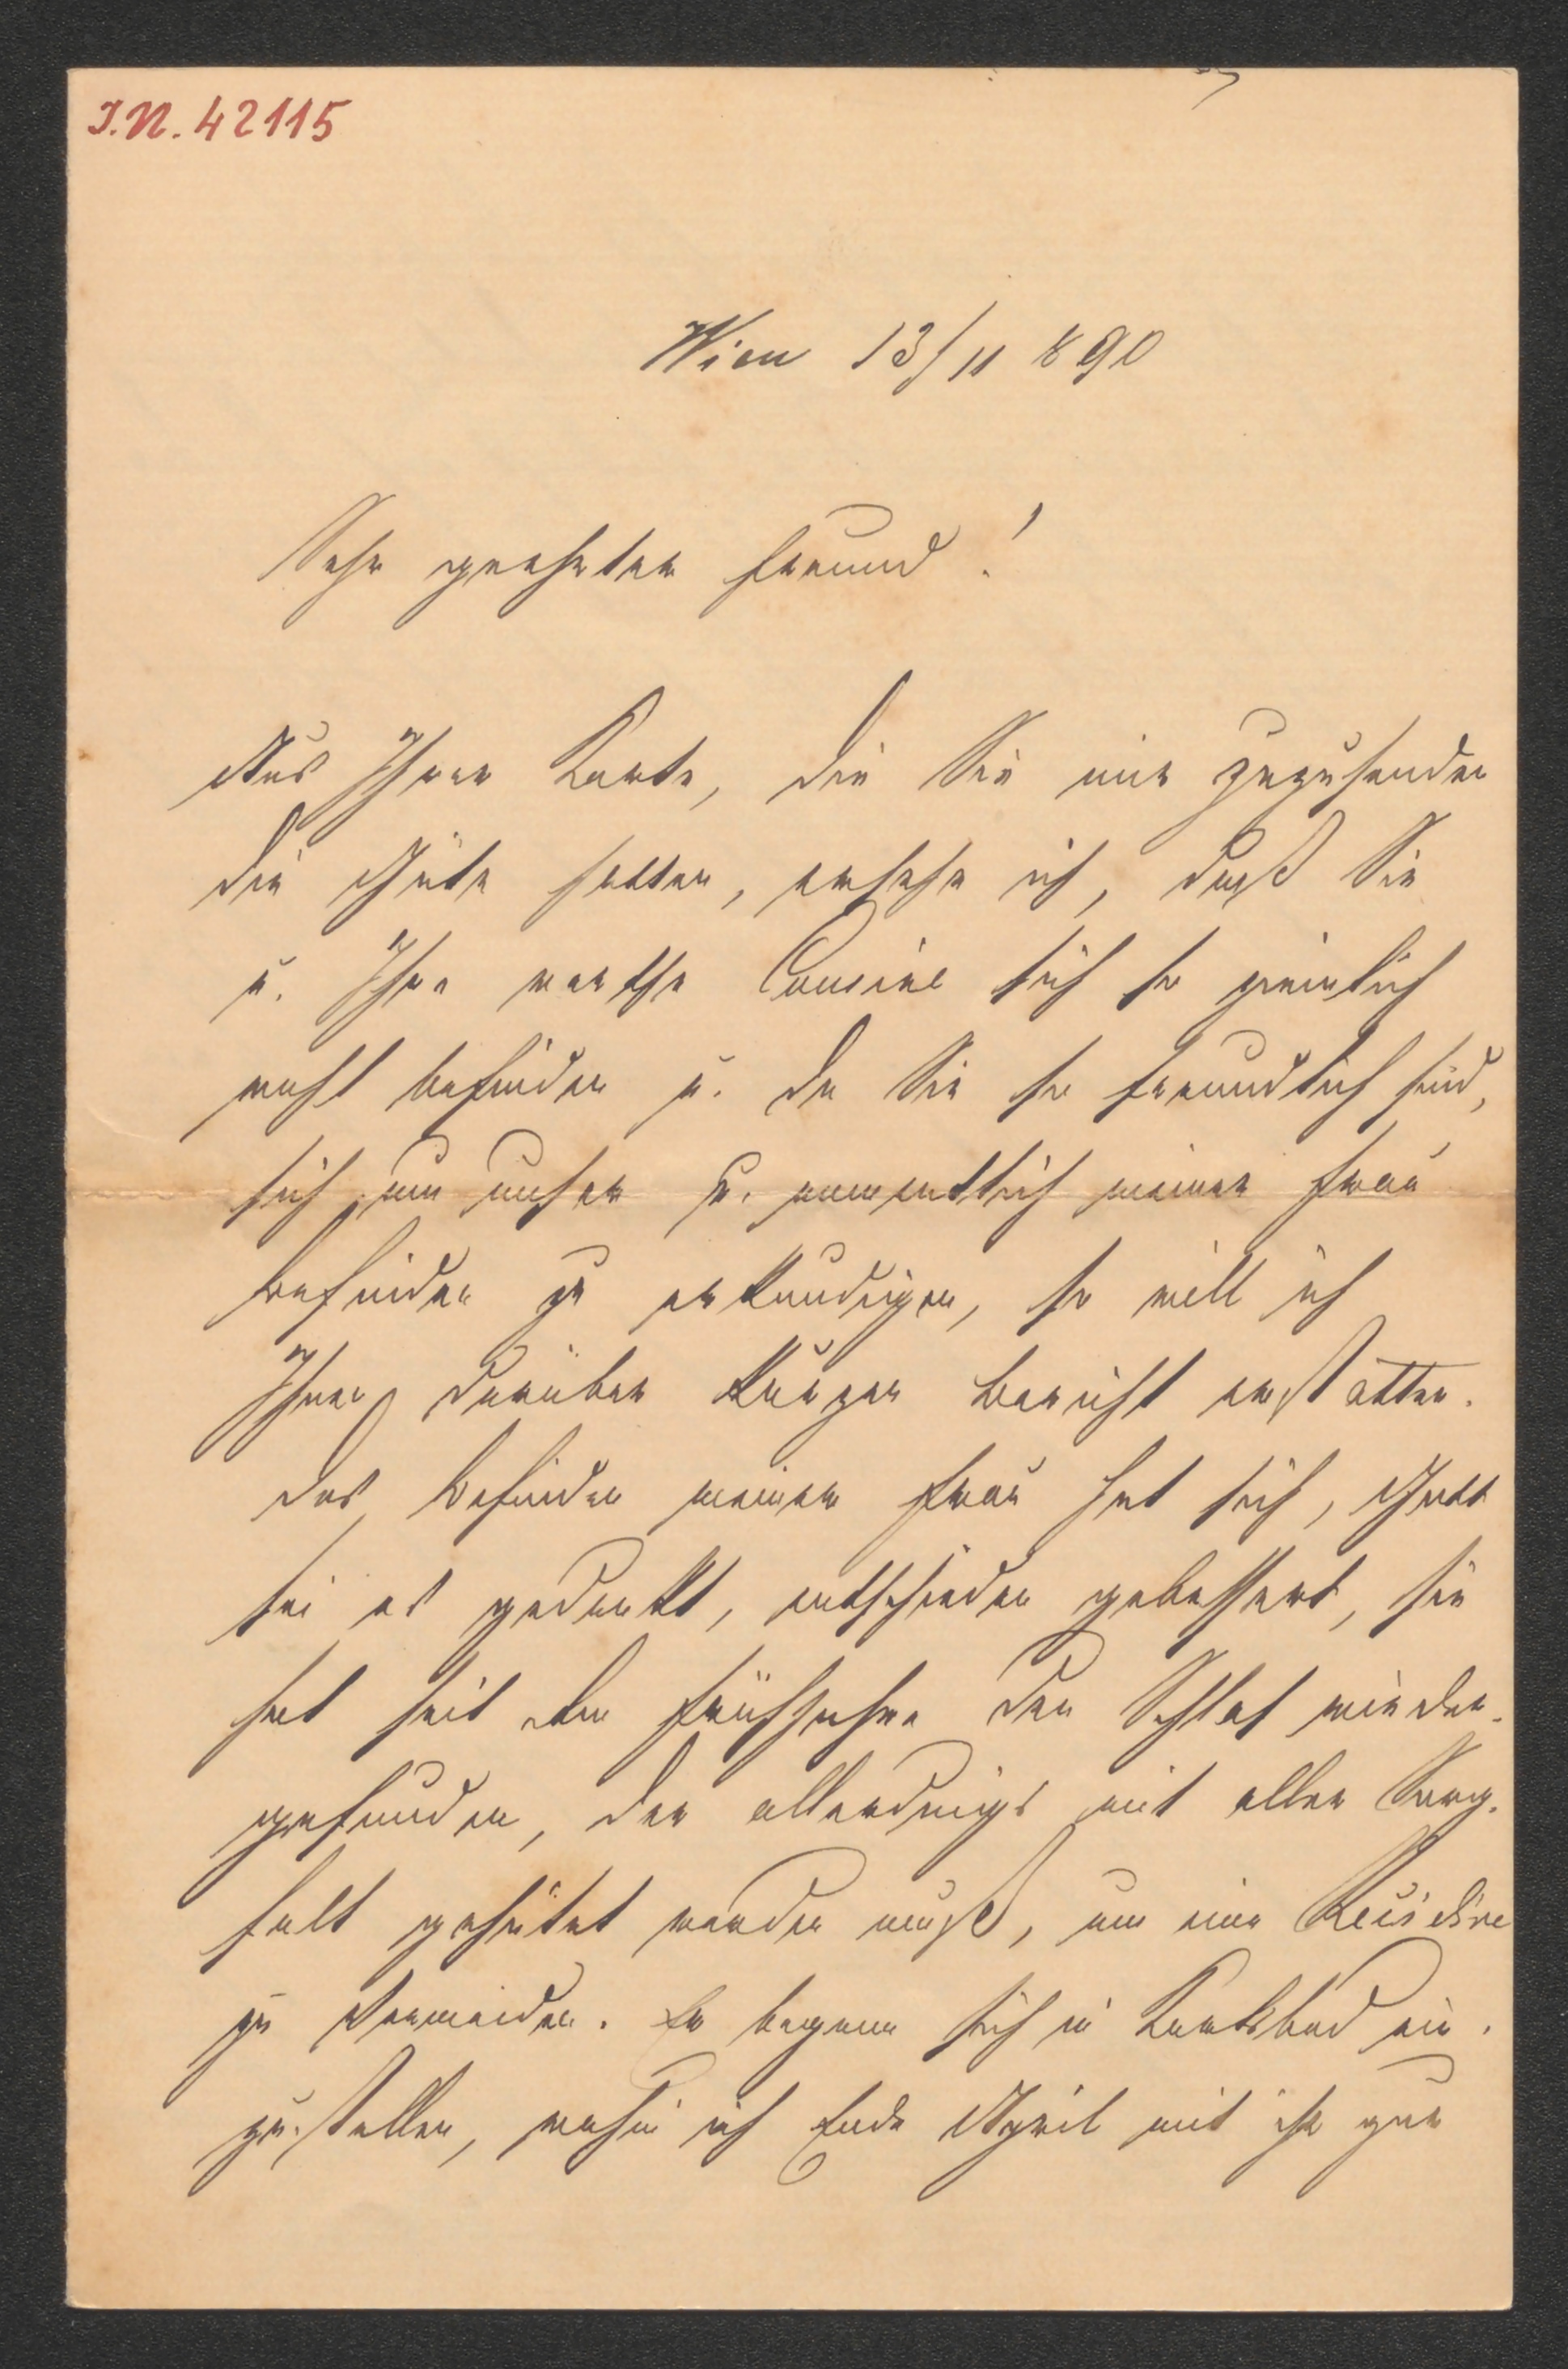 I.N. 42115
Wien 13/11 890
Sehr geehrter Freund!
Aus Ihrer Karte, die Sie mir zuzusenden
die Güte hatten, ersehe ich, daß Sie
u. Ihre werthe Cousine sich so ziemlich
wohl befinden u. da Sie so freundlich sind,
sich um unser u. namentlich meiner Frau
Befinden zu erkundigen, so will ich
Ihnen darüber kurzen Bericht erstatten.
Das Befinden meiner Frau hat sich, Gott
sei es gedankt, entschieden gebessert, sie
hat seit dem Frühjahre den Schlaf wieder
gefunden, der allerdings mit aller Sorg-
falt gehütet werden muß, um eine Recidive
zu vermeiden. Er begann sich in Karlsbad ein-
zustellen, wohin ich Ende April mit ihr zur